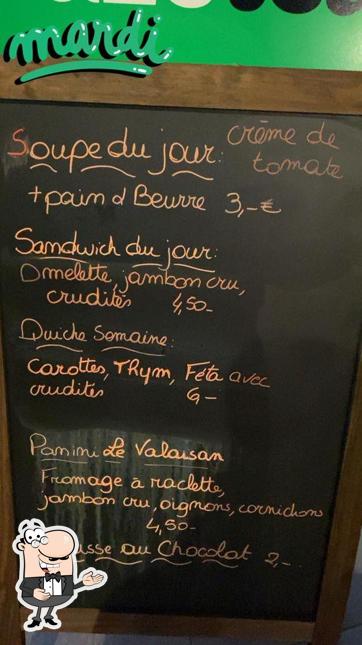 mardi
Soupe du jour: crème de
tomate
+ pain & Beurre 3,-€
Sandwich du jour:
Omelette, jambon cru,
crudités 4,50-
Quiche Semaine:
Carottes, Thym, Féta avec
crudités 6-
Panini Le Valaisan
Fromage à raclette,
jambon cru, oignons, cornichons
4,50-
au Chocolat 2,-